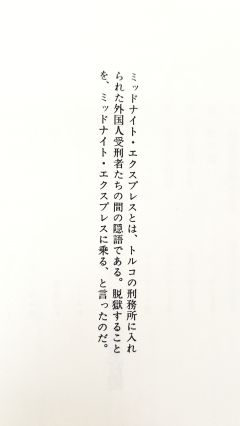 ミッドナイト・エクスプレスとは、トルコの刑務所に入れ
られた外国人受刑者たちの間の隠語である。脱獄すること
を、ミッドナイト・エクスプレスに乗る、と言ったのだ。